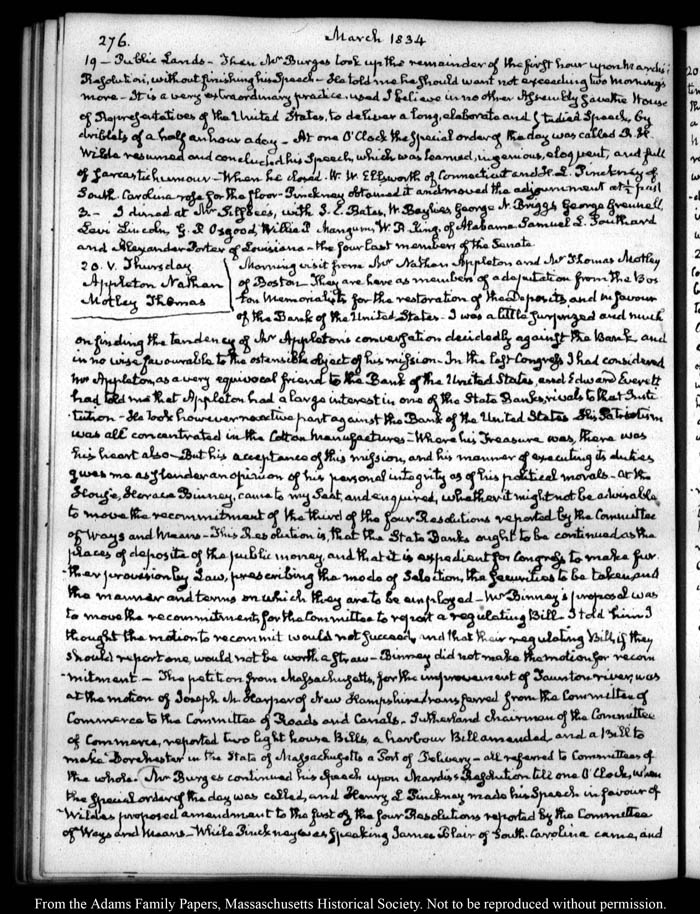 276.
March 1834
19 — Public Lands — Then Mr Burges took up the remainder of the first hour upon Mardis's
Resolution, without finishing his Speech — He told me he should want not exceeding two mornings
more — It is a very extraordinary practice, used I believe in no other Assembly save the House
of Representatives of the United States, to deliver a long, elaborate and studied Speech, by
driblets of a half an hour a day — At one O'Clock the special order of the day was called R. H.
Wilde resumed and concluded his Speech, which was learned, ingenious, eloquent, and full
of sarcastic humour — When he closed. W. W. Ellsworth of Connecticut and H. L. Pinckney of
South Carolina rose for the floor — Pinckney obtained it and moved the adjournment at ½ past
3. — I dined at Mr with I. C. Bates, W. Baylies George N. Briggs George Grennell
Levi Lincoln, G. Osgood, Willie P. Mangum, W. R. King, of Alabama Samuel L. Southard
and Alexander Porter of Louisiana — the four last members of the Senate.
20. V. Thursday
Appleton Nathan
Motley Thomas
Morning visit from Mr Nathan Appleton and Mr Thomas Motley
of Boston. They are here as members of a deputation from the Bos
ton Memorialists for the restoration of the Deposits, and in favour
of the Bank of the United States — I was a little surprized and much
on finding the tendency of Mr Appleton's conversation decidedly against the Bank, and
in no wise favourable to the ostensible object of his mission — In the last Congress I had considered
Mr Appleton, as a very equivocal friend to the Bank of the United States, and Edward Everett
had told me that Appleton had a large interest in one of the State Banks, rivals to that Insti
tution — He took however no active part against the Bank of the United States. His Patriotism
was all concentrated in the Cotton Manufactures — Where his Treasure was, there was
his heart also — But his acceptance of this mission, and his manner of executing its duties
gives me as slender an opinion of his personal integrity as of his political morals — At the
House, Horace Binney, came to my Seat, and enquired, whether it might not be advisable
to move the recommitment of the third of the four Resolutions reported by the Committee
of Ways and Means — This Resolution is, that the State Banks ought to be continued as the
places of deposite of the public money, and that it is expedient for Congress to make fur
ther provision by Law, prescribing the mode of selection, the securities to be taken, and
the manner and terms on which they are to be employed — Mr Binney's proposal was
to move the recommitment, for the Committee to report a regulating Bill — I told him I
thought the motion to recommit would not succeed, and that their regulating Bill, if they
should report one, would not be worth a straw — Binney did not make the motion for recom
mitment — The petition from Massachusetts, for the improvement of Taunton river, was
at the motion of Joseph M. Harper of New Hampshire transferred from the Committee of
Commerce to the Committee of Roads and Canals — Sutherland chairman of the Committee
of Commerce, reported two light house Bills, a harbour Bill amended, and a Bill to
make Dorchester in the State of Massachusetts a Port of Delivery — all referred to Committees of
the whole. Mr Burges continued his Speech upon Mardis's Resolution till one O'Clock, when
the special order of the day was called, and Henry L. Pinckney made his Speech in favour of
Wilde's proposed amendment to the first of the four Resolutions reported by the Committee
of Ways and Means — While Pinckney was speaking James Blair of South Carolina came, and
From the Adams Family Papers, Massachusetts Historical Society. Not to be reproduced without permission.